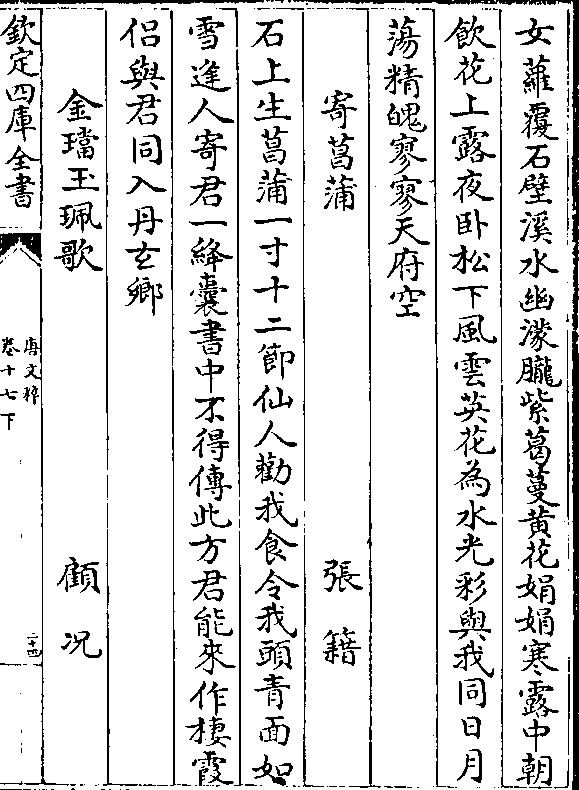 女蘿覆石壁溪水幽濛朧紫葛蔓黄花娟娟寒露中朝
飲花上露夜卧松下風雲英花為水光彩與我同日月
蕩精魄寥寥天府空
寄菖蒲　張籍
石上生菖蒲一寸十二節仙人勸我食令我頭青面如
雪逢人寄君一絳囊書中不得傳此方君能來作棲霞
侣與君同入丹玄鄉
金璫玉珮歌　顧况
欽定四庫全書
唐文粹
卷十七下
二十四